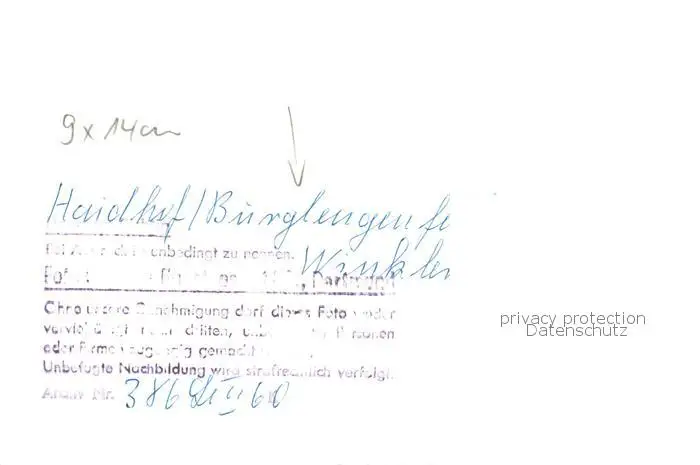 9 x 14 cm
Haidhof/Burglengenfe
Bei unbedingt zu nennen.
Winkler
Ohne unsere Genehmigung darf dieses Foto weder
vervielfältigt noch dritten, Personen
oder Firmen zugängig gemacht
Unbefugte Nachbildung wird strafrechtlich verfolgt.
Archiv Nr. 386 60
privacy protection
Datenschutz